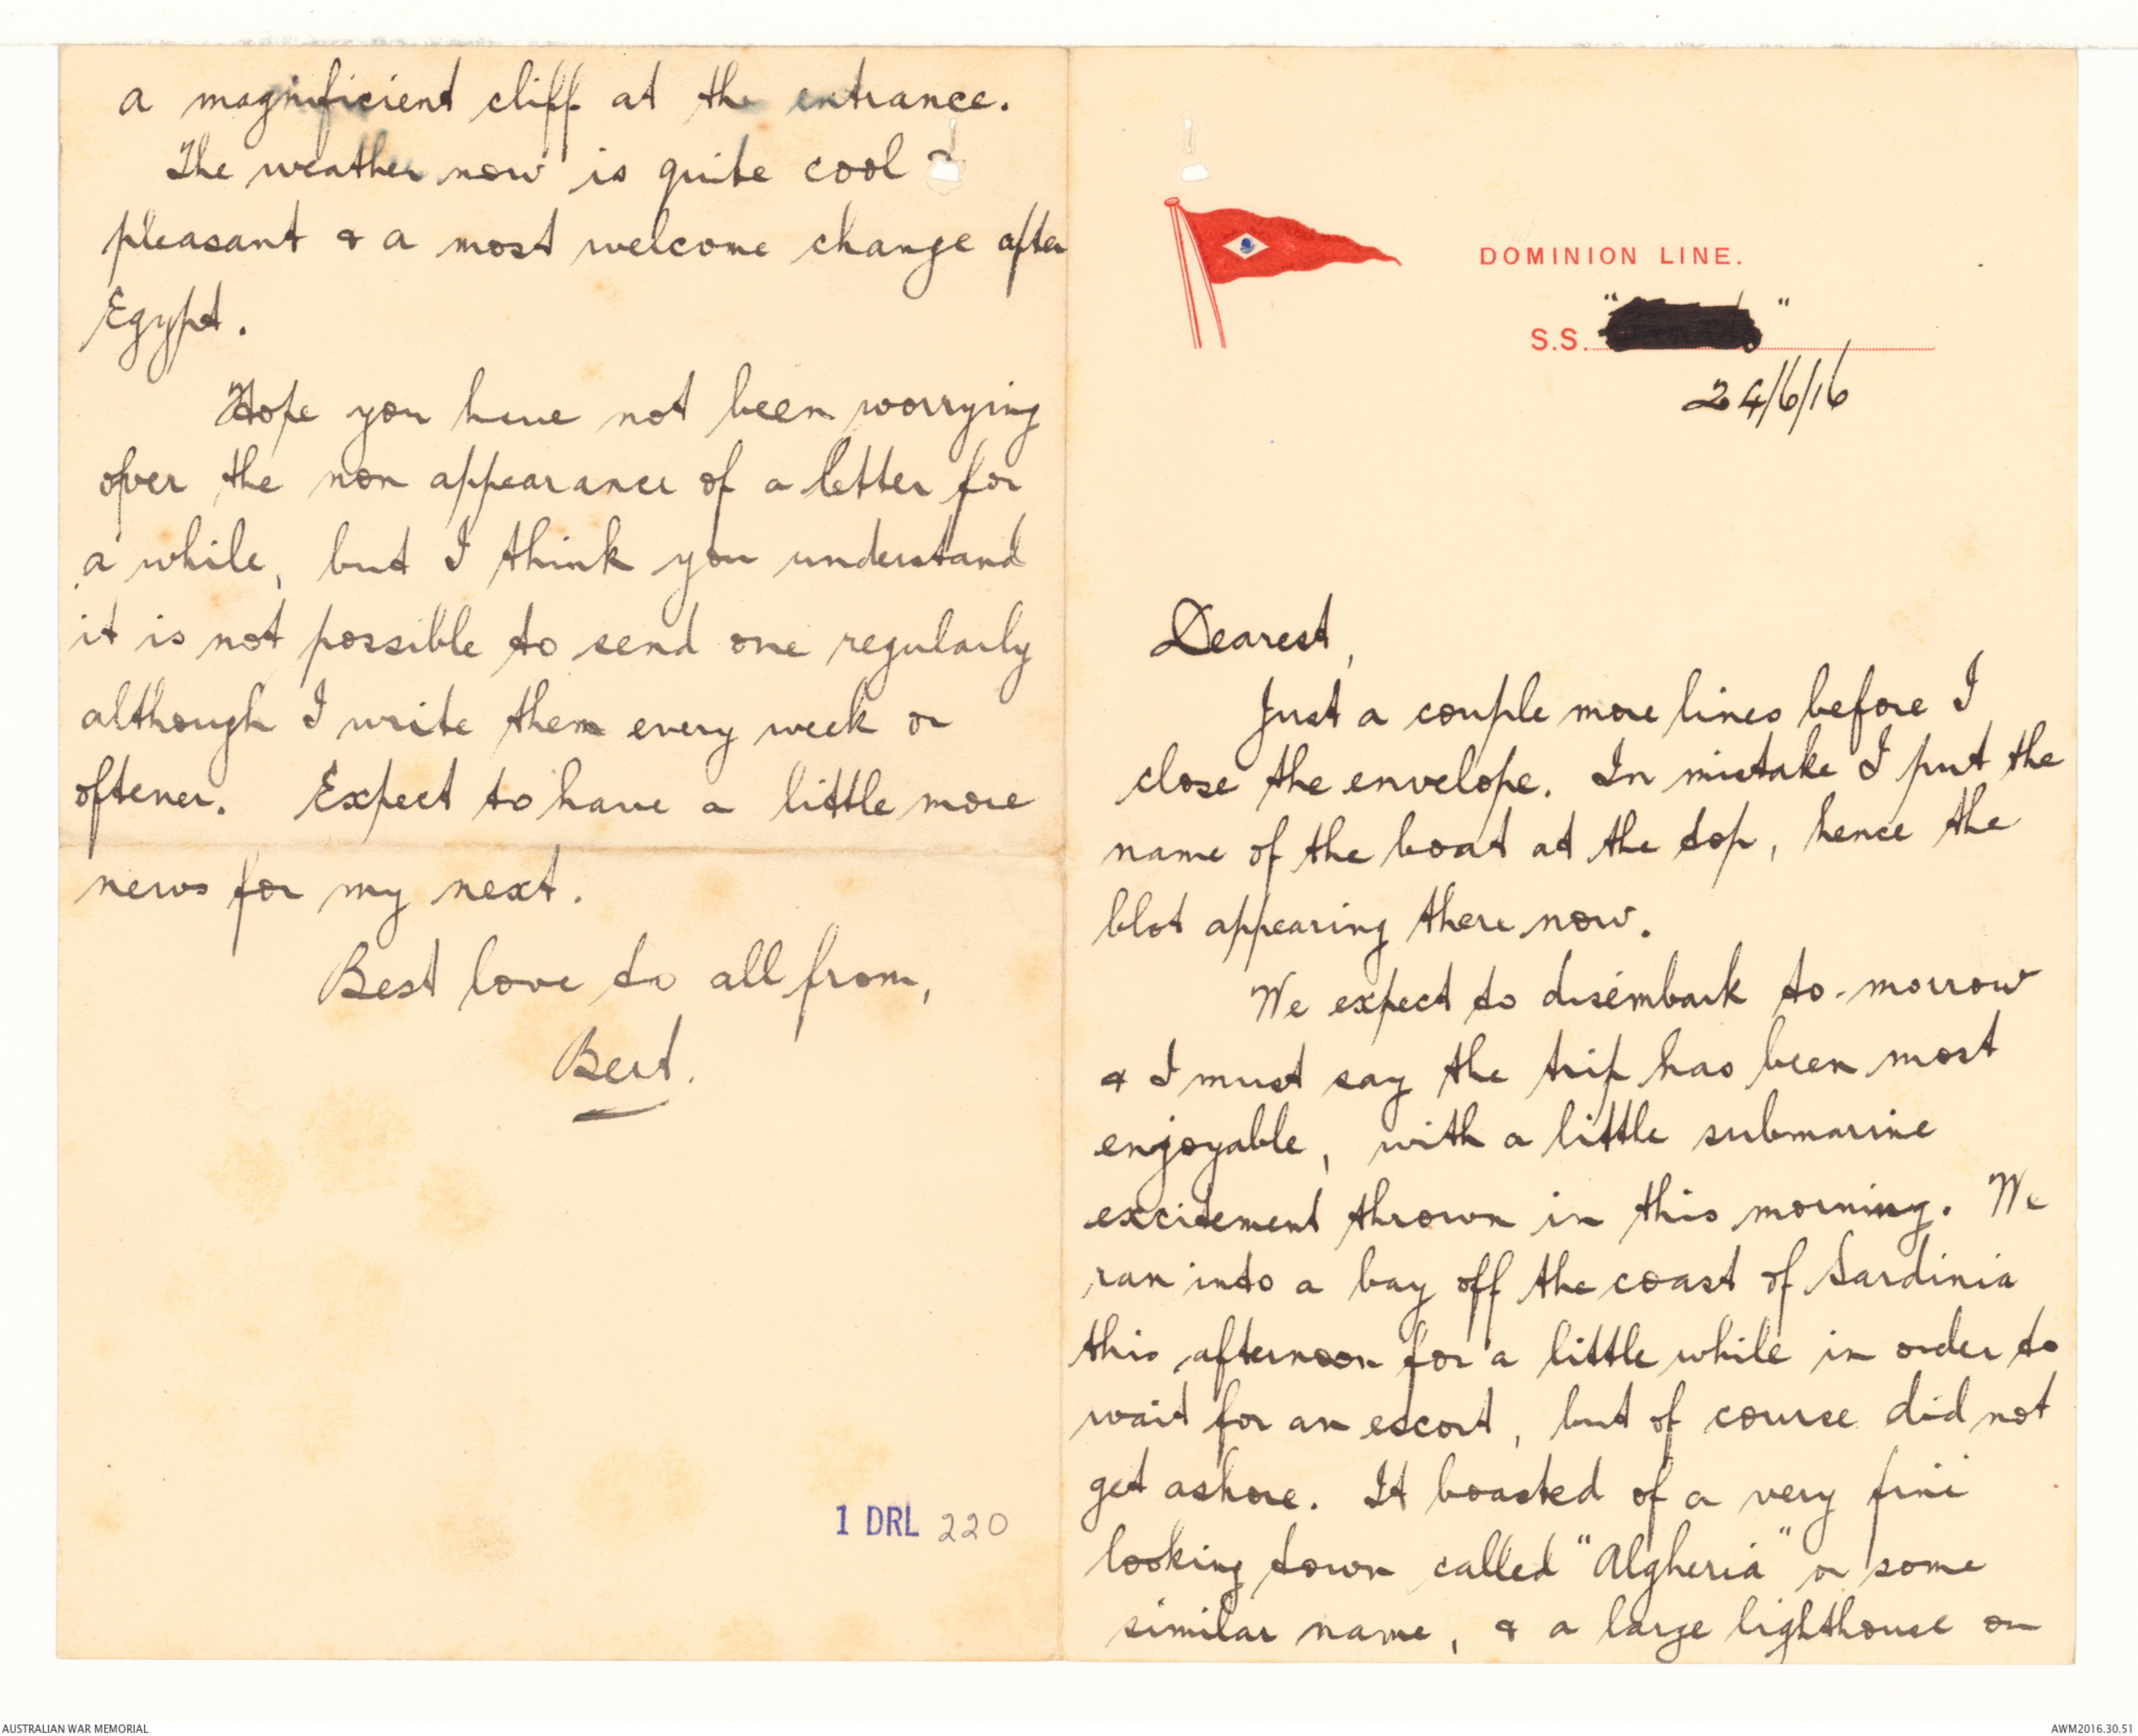 DOMINION LINE.
S.S. " "
24/6/16
Dearest,
Just a couple more lines before I
close the envelope. In mistake I put the
name of the boat at the top, hence the
blot appearing there now.
We expect to disembark to-morrow
& I must say the trip has been most
enjoyable, with a little submarine
excitement thrown in this morning. We
ran into a bay off the coast of Sardinia
this afternoon for a little while in order to
wait for an escort, but of course did not
get ashore. It boasted of a very fine
looking town called "Algheria" or some
similar name, & a large lighthouse on
a magnificient cliff at the entrance.
The weather now is quite cool &
pleasant & a most welcome change after
Egypt.
Hope you have not been worrying
over the non appearance of a letter for
a while, but I think you understand
it is not possible to send one regularly
although I write them every week or
oftener. Expect to have a little more
news for my next.
Best love to all from,
Bert.
1 DRL 220
AUSTRALIAN WAR MEMORIAL
AWM2016.30.51